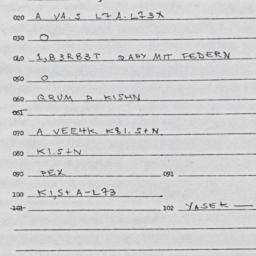 020 A VA.S L7 A.L73X
030 O
040 1,B3R83T 2ABY MIT FEDERN
050 O
060 QRUM A KISHN
061
070 A VEE4K K81.S+N
080 K1.S+N
090 PEX 091
100 K1,S+ A-L73
101 102 YASEK —